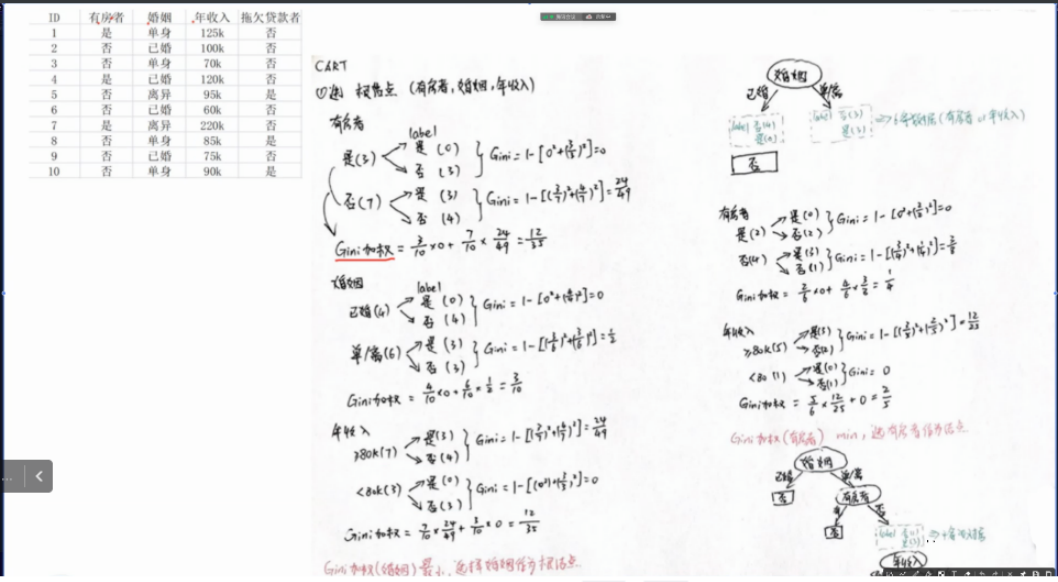 ID 有房者 婚姻 年收入 拖欠贷款者
1 是 单身 125k 否
2 否 已婚 100k 否
3 否 单身 70k 否
4 是 已婚 120k 否
5 否 离异 95k 是
6 否 已婚 60k 否
7 是 离异 220k 否
8 否 单身 85k 是
9 否 已婚 75k 否
10 否 单身 90k 是
CART
①选 根节点 (有房者,婚姻,年收入)
有房者
label
是(3) 是 (0)
否 (3)
Gini = 1-[0²+(3/3)²]=0
否(7) 是 (3)
否 (4)
Gini = 1-[(3/7)²+(4/7)²]=24/49
Gini加权 = 3/10×0+ 7/10 × 24/49 = 12/35
婚姻
label
已婚(4) 是 (0)
否 (4)
Gini = 1-[0²+(4/4)²]=0
单/离(6) 是 (3)
否 (3)
Gini = 1-[(3/6)²+(3/6)²]=1/2
Gini加权 = 4/10×0+6/10×1/2 = 3/10
年收入
≥80k(7) 是(3)
否(4)
Gini = 1-[(3/7)²+(4/7)²]=24/49
<80k(3) 是(0)
否(3)
Gini = 1-[(0²)+(3/3)²]=0
Gini加权 = 7/10×24/49+3/10×0 = 12/35
Gini加权(婚姻)最小,选择婚姻作为根结点
婚姻
已婚 单/离
label 否(4)
是(0)
label 否(3)
是(3)
(有房者 or 年收入)
否
有房者
是(2) 是(0)
否(2)
Gini = 1-[0²+(2/2)²]=0
否(4) 是(3)
否(1)
Gini = 1-[(3/4)²+(1/4)²]=3/8
Gini加权 = 2/6×0+ 4/6×3/8 = 1/4
年收入
≥80k(5) 是(3)
否(2)
Gini = 1-[(3/5)²+(2/5)²]=12/25
<80(1) 是(0)
否(1)
Gini = 0
Gini加权 = 5/6×12/25+0=2/5
Gini加权(有房者) min,选有房者作为结点
婚姻
已婚 单/离
否 有房者
是 否
否
年收入